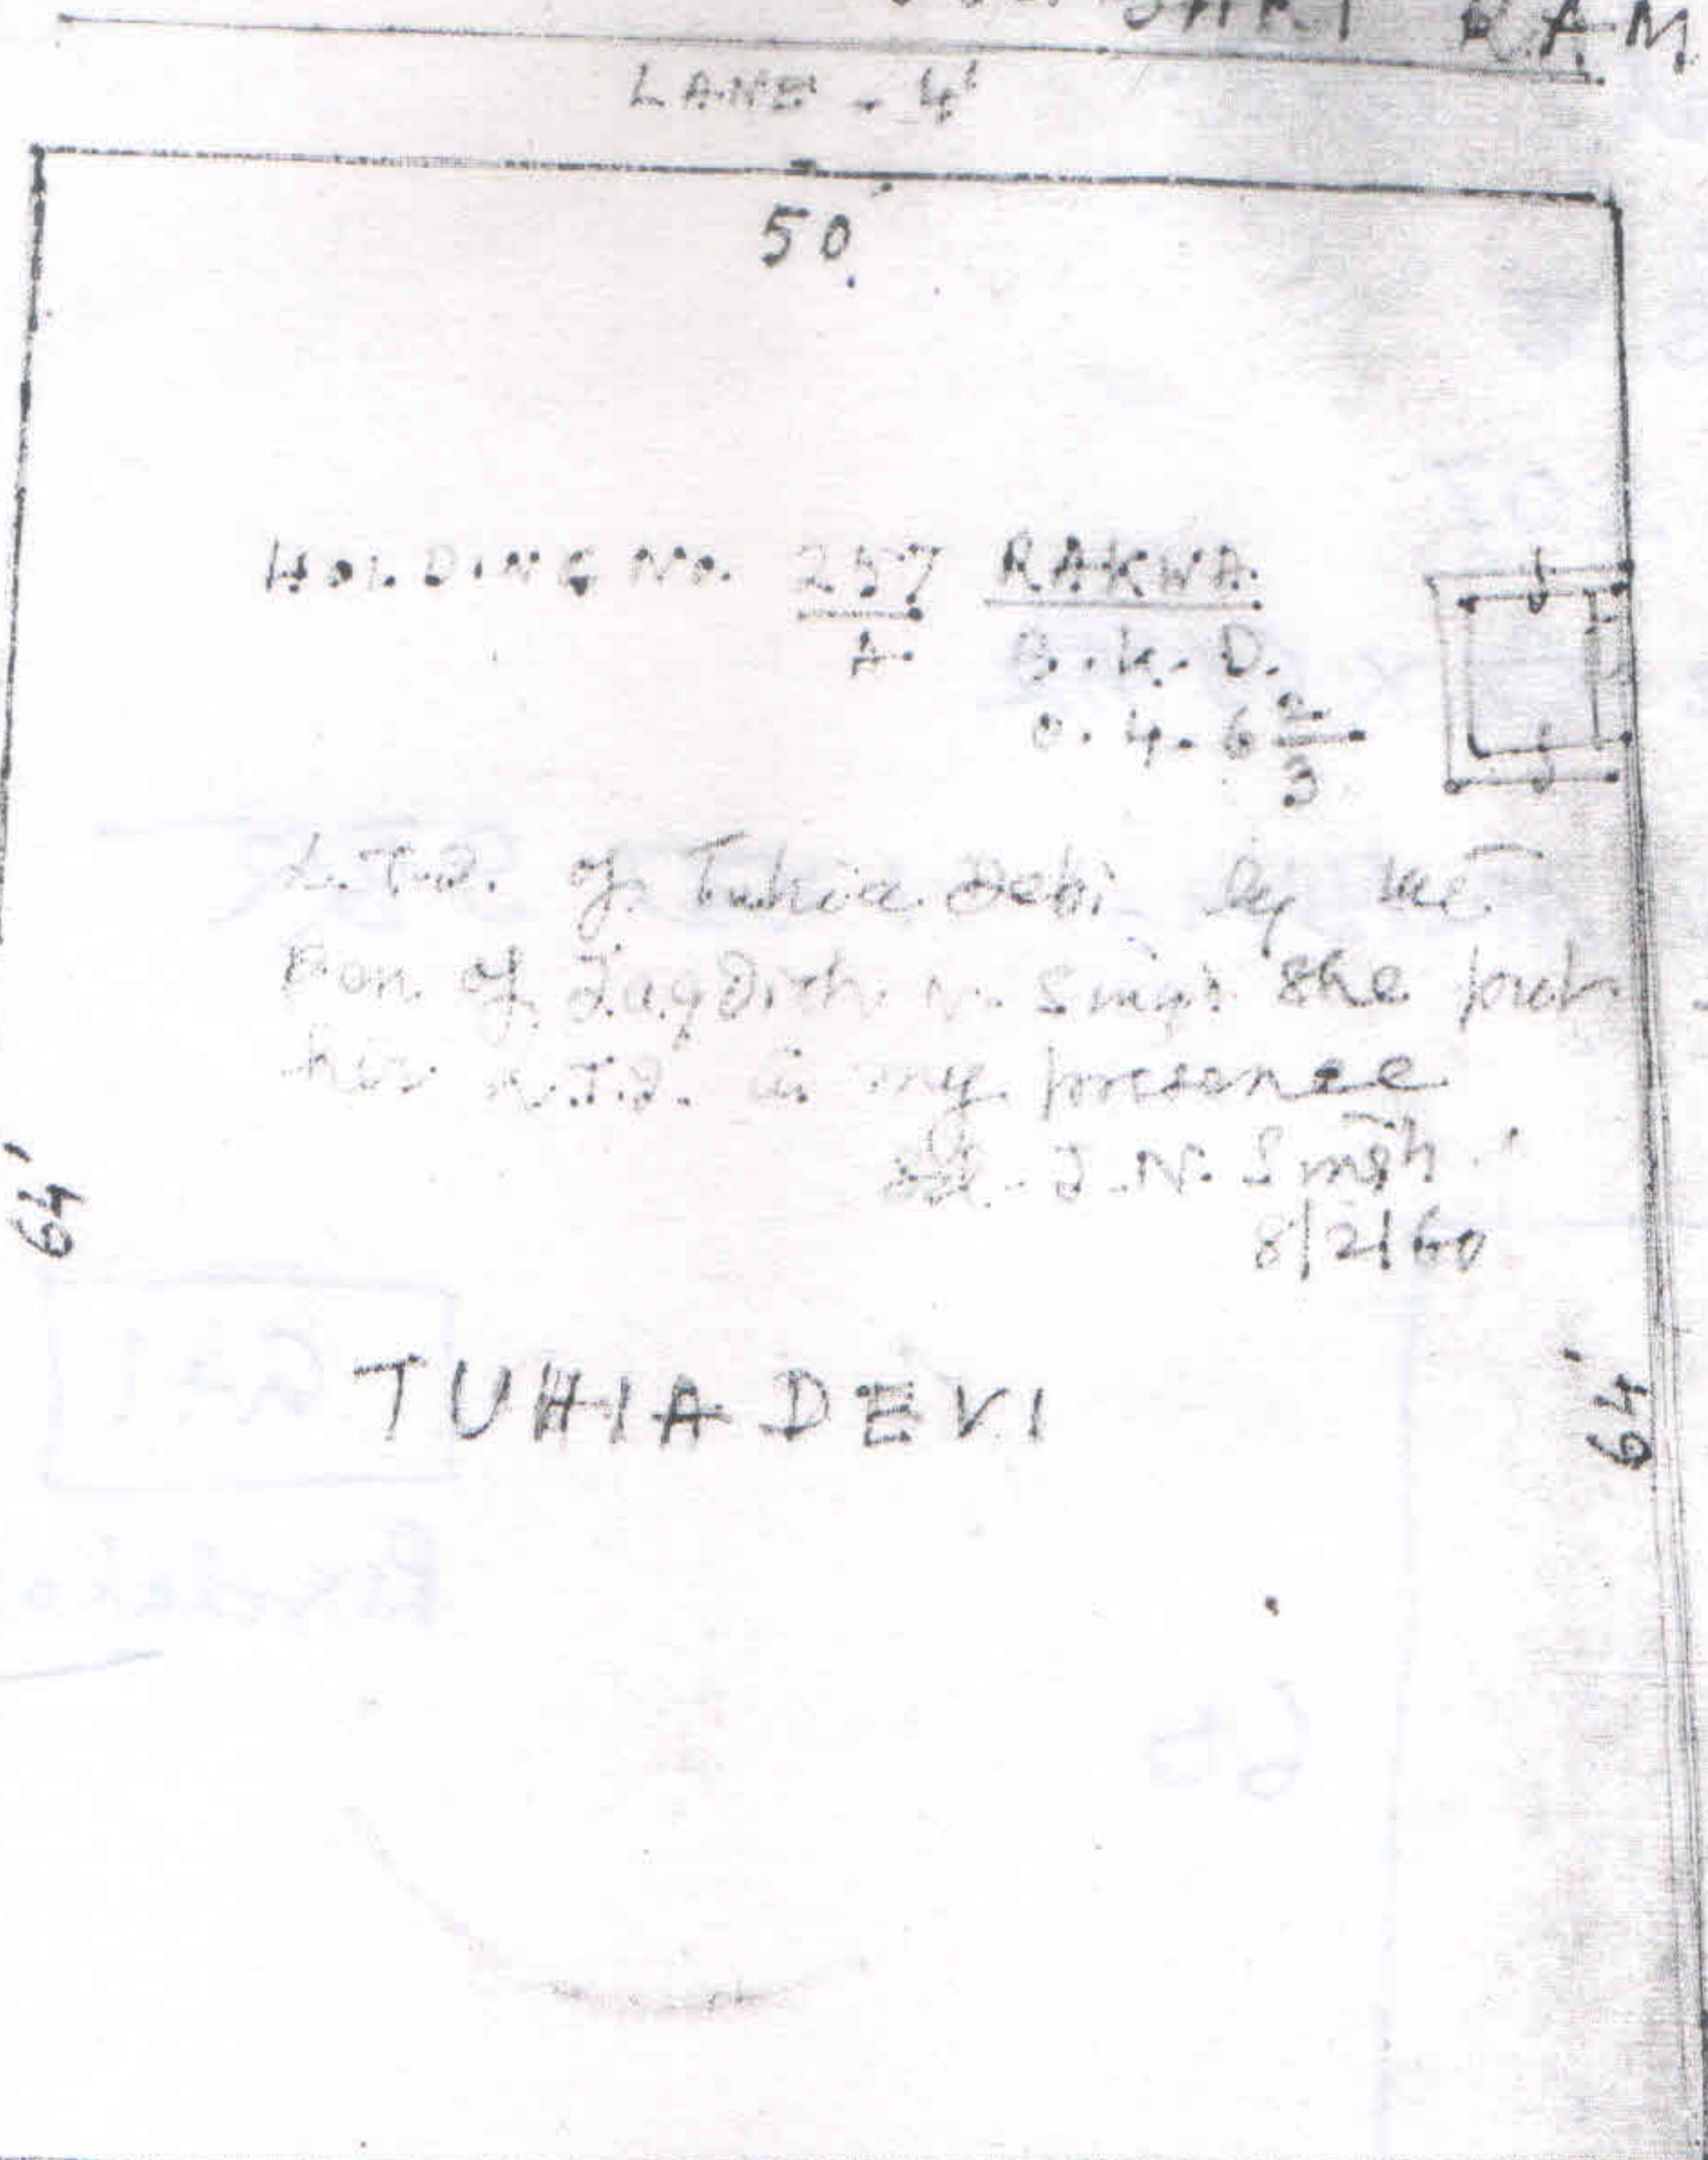 RAM
LANE - 4'
50
HOLDING No. 257 RAKWA
A. B. K. D.
0. 4. 6 2/3
L.T.I. of Tuhia Debi by the
Pen of Jagdish N. Singh She put
her L.T.I. in my presence
Sd. J. N. Singh
8/2/60
64'
64'
TUHIA DEVI